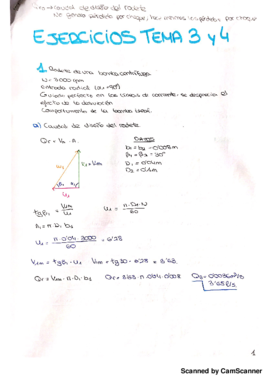 Caudal de diseño del rodete
No generar pérdidas por choque
EJERCICIOS TEMA 3 y 4
1. Rodete de una bomba centrífuga
N = 3000 rpm
Entrada radial (α₁ = 90º)
Guiado perfecto en las líneas de corriente, se desprecia el
efecto de la desviación
Comportamiento de la bomba ideal.
a) Caudal de diseño del rodete
Qr = V₁m · A₁
DATOS
b₁ = b₂ = 0'008 m
β₁ = β₂ = 30º
D₁ = 0'04m
D₂ = 0'1m
V₁ = V₁m
β₁
u₁
tg β₁ = V₁m / u₁
u₁ = π · D₁ · N / 60
A₁ = π · D₁ · b₁
u₁ = π · 0'04 · 3000 / 60 = 6'28
V₁m = tg β₁ · u₁ V₁m = tg 30 · 6'28 = 3'63
Qr = V₁m · π · D₁ · b₁ Qr = 3'63 · π · 0'04 · 0'008
1
Scanned by CamScanner